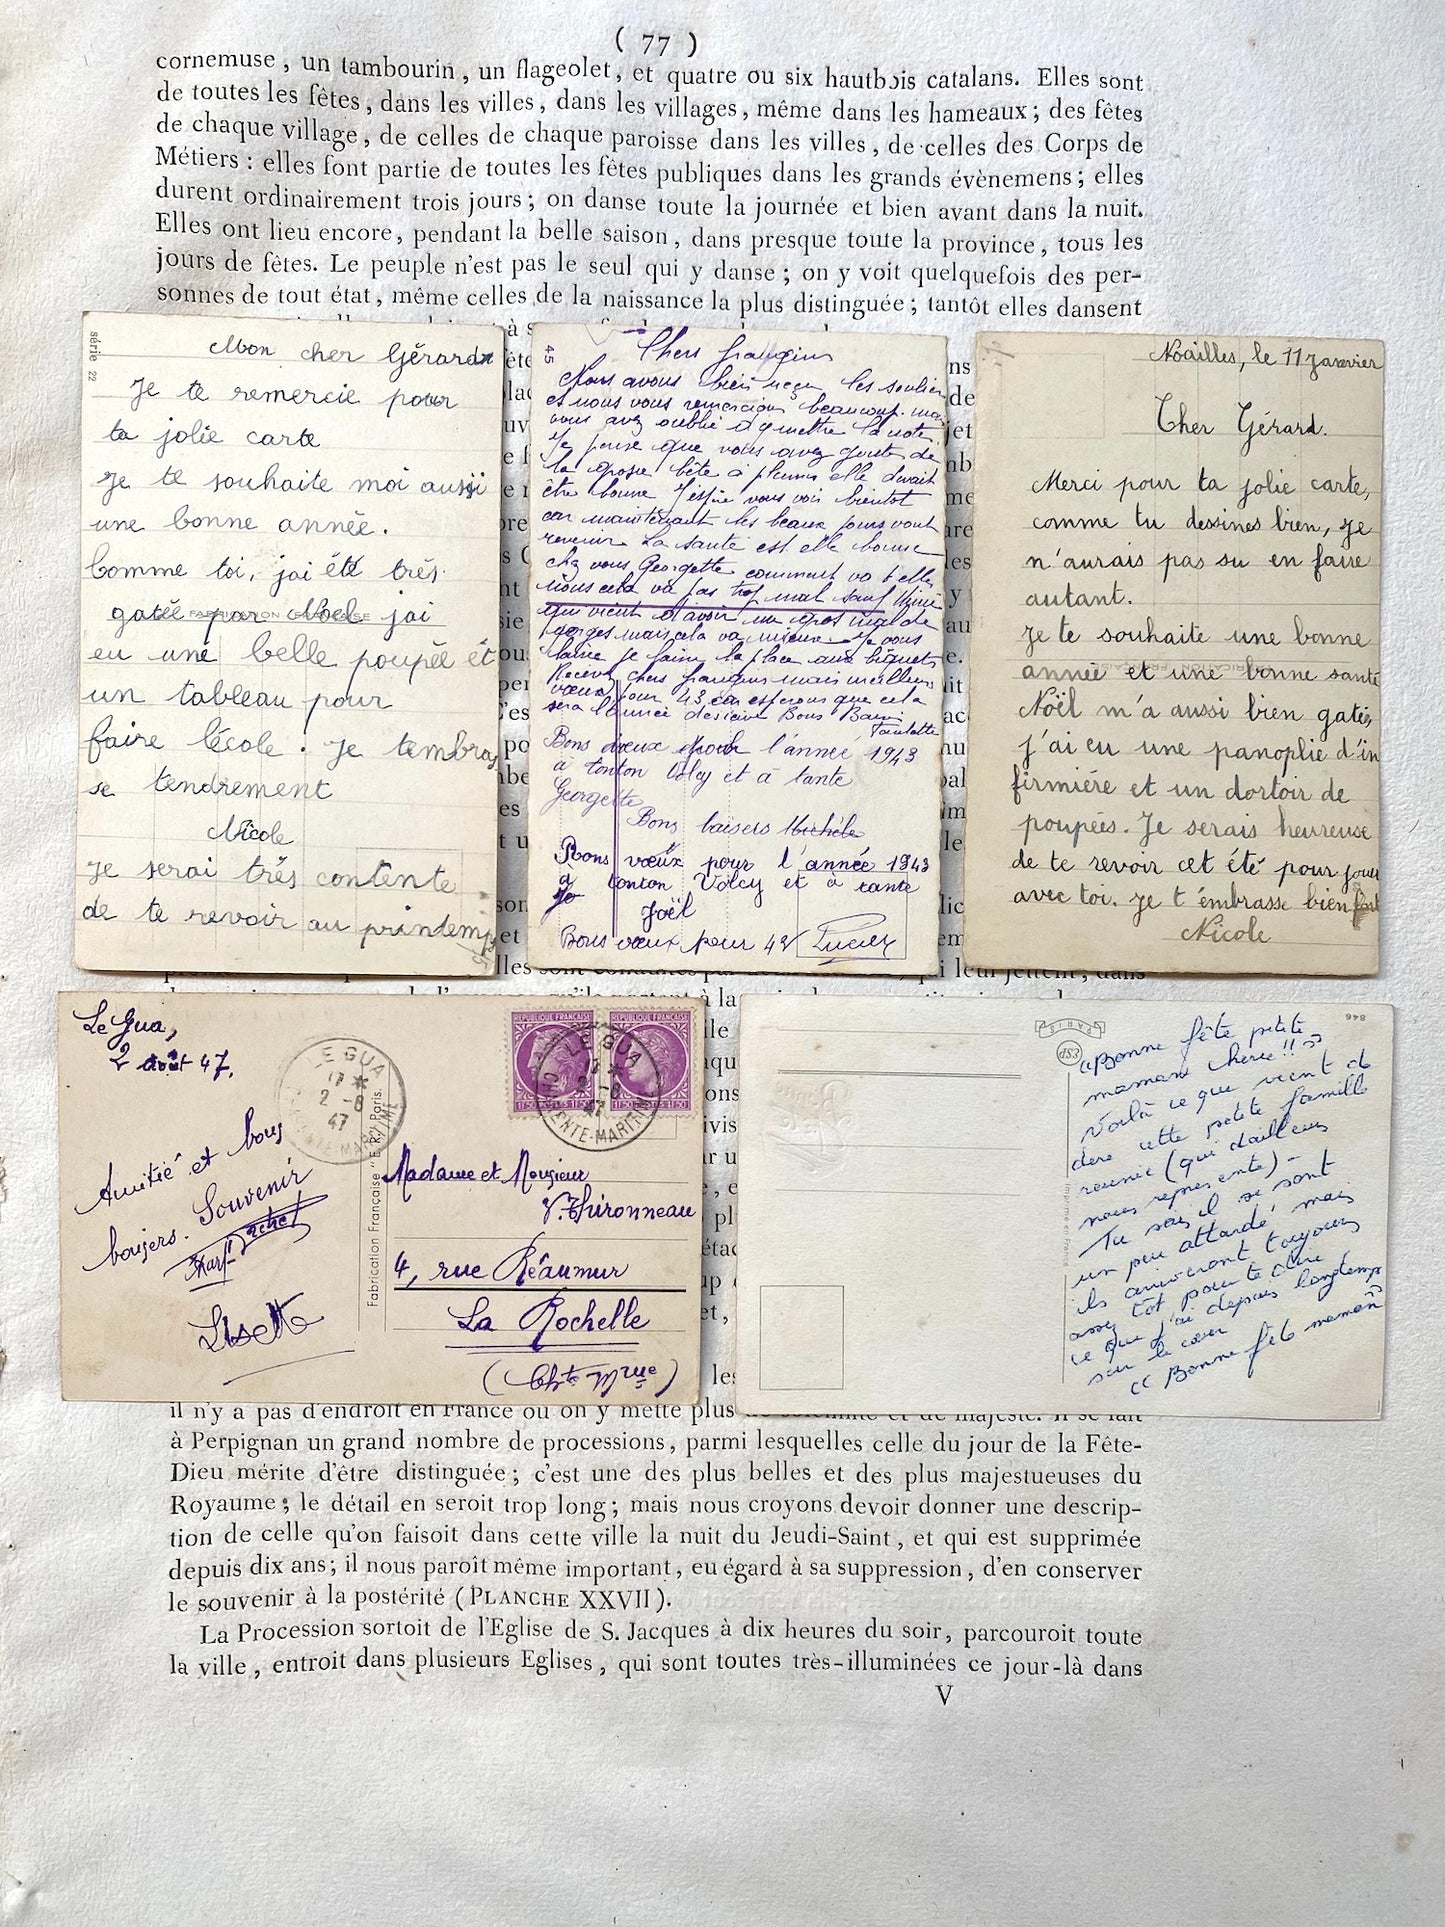 ( 77 )
cornemuse, un tambourin, un flageolet, et quatre ou six hautbois catalans. Elles sont
de toutes les fêtes, dans les villes, dans les villages, même dans les hameaux; des fêtes
de chaque village, de celles de chaque paroisse dans les villes, de celles des Corps de
Métiers : elles font partie de toutes les fêtes publiques dans les grands évènemens; elles
durent ordinairement trois jours; on danse toute la journée et bien avant dans la nuit.
Elles ont lieu encore, pendant la belle saison, dans presque toute la province, tous les
jours de fêtes. Le peuple n'est pas le seul qui y danse; on y voit quelquefois des per-
sonnes de tout état, même celles de la naissance la plus distinguée; tantôt elles dansent
série 22
Mon cher Gérard
Je te remercie pour
ta jolie carte
Je te souhaite moi aussi
une bonne année.
Comme toi, jai été très
gatée par Noël jai
FABRICATION
eu une belle poupée et
un tableau pour
faire l'école. Je tembras
se tendrement
Nicole
Je serai très contente
de te revoir au printemps
45
Chers frangins
Nous avons bien reçu les souliers
et nous vous remercions beaucoup. mais
vous avez oublié d'y mettre la note
Je pense que vous avez goûté de
la grosse bête à plumes elle devait
être bonne J'espère vous voir bientot
car maintenant les beaux jours vont
revenir La santé est elle bonne
chez vous Georgette comment va t elle
nous cela va pas trop mal sauf
qui vient d'avoir un gros mal de
gorges mais cela va mieux. Je vous
laisse je faire la place aux
Recevez chers frangins mais meilleurs
vœux pour 43 en esperons que cela
sera l'année desicive Bons Baisers
Paulette
Bons vœux pour l'année 1943
à tonton Volcy et à tante
Georgette
Bons baisers Michéle
Bons vœux pour l'année 1943
a tonton Volcy et à tante
Joël
Bons vœux pour 43 Lucien
Noailles, le 11 janvier
Cher Gérard.
Merci pour ta jolie carte,
comme tu dessines bien, je
n'aurais pas su en faire
autant.
Je te souhaite une bonne
année et une bonne santé
FABRICATION FRANÇAISE
Noël m'a aussi bien gatée,
j'ai eu une panoplie d'in
firmière et un dortoir de
poupées. Je serais heureuse
de te revoir cet été pour jouer
avec toi. Je t'émbrasse bien fort
Nicole
Le Gua,
2 août 47.
LE GUA
2 -8
47
REPUBLIQUE FRANÇAISE
REPUBLIQUE FRANÇAISE
1F50
1F50
LE GUA
2 -8
47
CHARENTE-MARITIME
Amitié et bons
baisers. Souvenir
Lisette
Fabrication Française "E.R." Paris.
Madame et Monsieur
V. Thironneau
4, rue Réaumur
La Rochelle
(Chte Mme)
PARIS
d83
846
Imprimé en France
"Bonne fête petite
maman cherie!!"
Voilà ce que vient de
dire cette petite famille
reunie (qui d'ailleurs
nous represente) -
Tu sais, il se sont
un peu attardé, mais
ils arriveront toujours
assez tôt pour te dire
ce que j'ai depuis longtemps
sur le cœur
"Bonne fête maman"
il n'y a pas d'endroit en France où on y mette plus de solemnité et de majesté. Il se fait
à Perpignan un grand nombre de processions, parmi lesquelles celle du jour de la Fête-
Dieu mérite d'être distinguée; c'est une des plus belles et des plus majestueuses du
Royaume; le détail en seroit trop long; mais nous croyons devoir donner une descrip-
tion de celle qu'on faisoit dans cette ville la nuit du Jeudi-Saint, et qui est supprimée
depuis dix ans; il nous paroît même important, eu égard à sa suppression, d'en conserver
le souvenir à la postérité (PLANCHE XXVII).
La Procession sortoit de l'Eglise de S. Jacques à dix heures du soir, parcouroit toute
la ville, entroit dans plusieurs Eglises, qui sont toutes très-illuminées ce jour-là dans
V